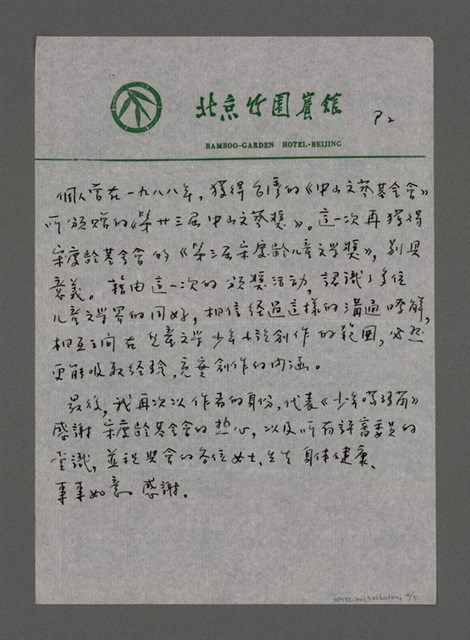 北京竹園賓館
P2
BAMBOO-GARDEN HOTEL·BEIJING
個人曾在一九八八年，獲得台灣的《中山文藝基金會》
所頒贈的《第廿三屆中山文藝獎》。這一次再獲得
宋慶齡基金會的《第三屆宋慶齡兒童文學獎》，別具
意義。藉由這一次的頒獎活動，認識了多位
兒童文學界的同好，相信經過這樣的溝通瞭解，
相互之間在兒童文學少年小說創作的範圍，必然
更能吸取經驗，充實創作的內涵。
最後，我再次以作者的身份，代表《少年噶瑪蘭》
感謝宋慶齡基金會的熱心，以及所有評審委員的
賞識，並祝與會的各位女士、先生身體健康、
事事如意。感謝。